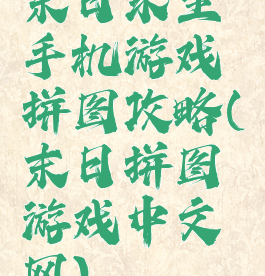 手机游戏
拼图攻略(
末日拼图
游戏中文
网)